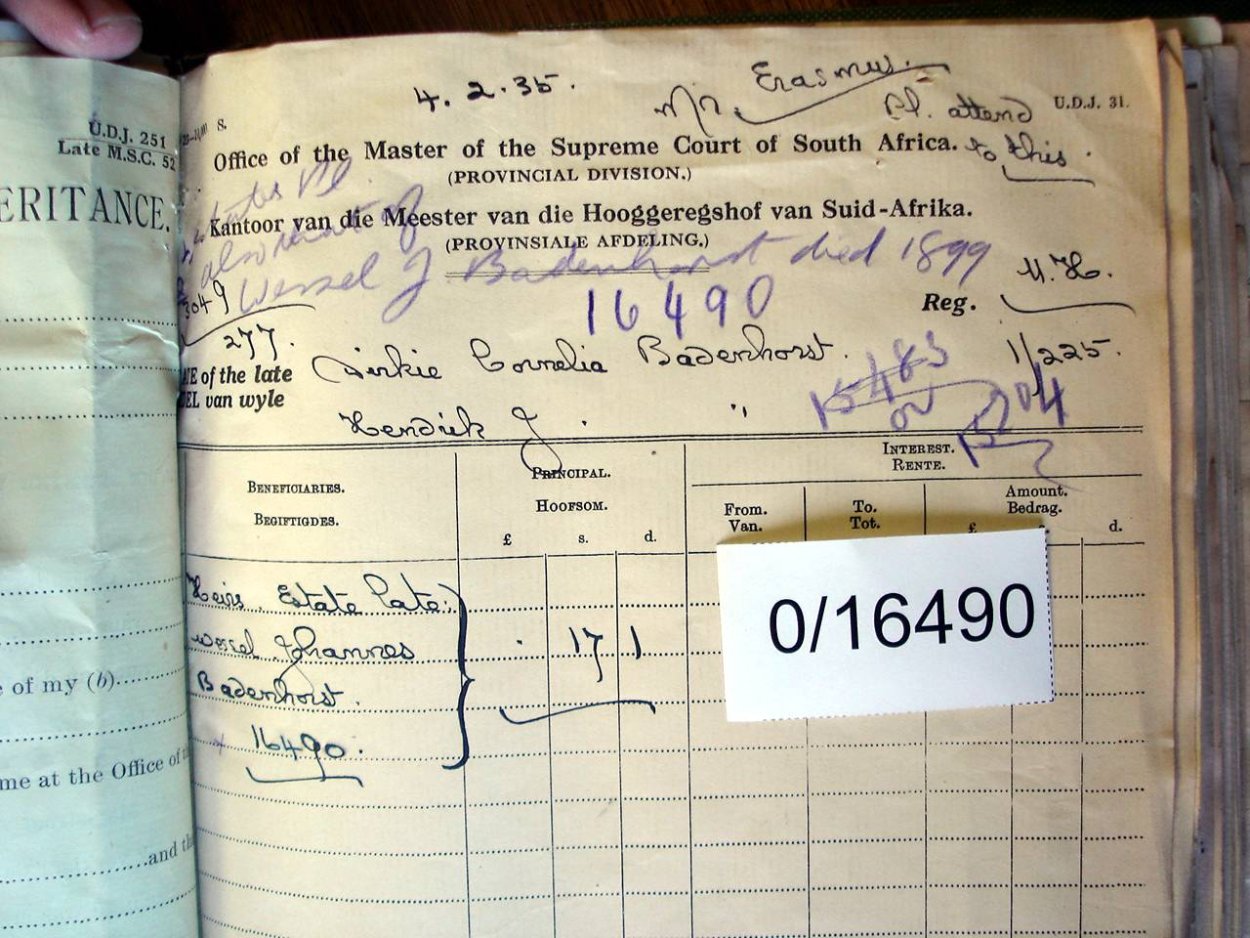 U.D.J. 251
Late M.S.C. 52
ERITANCE.
of my (b)
me at the Office of
and th
4.2.35.
Mr. Erasmus.
Pl. attend
to this.
U.D.J. 31.
S.
Office of the Master of the Supreme Court of South Africa.
(PROVINCIAL DIVISION.)
Kantoor van die Meester van die Hooggeregshof van Suid-Afrika.
(PROVINSIALE AFDELING.)
also that of
Wessel J Badenhorst died 1899
3049
277.
16490
Reg.
M.H.
1/225.
TE of the late
DEL van wyle
Dirkie Cornelia Badenhorst.
Hendrik J. "
15483
or
BENEFICIARIES.
BEGIFTIGDES.
PRINCIPAL.
HOOFSOM.
£ s. d.
INTEREST.
RENTE.
From.
Van.
To.
Tot.
Amount.
Bedrag.
£ s. d.
Heirs. Estate late
Wessel Johannes
Badenhorst.
16490.
. 17 1
0/16490